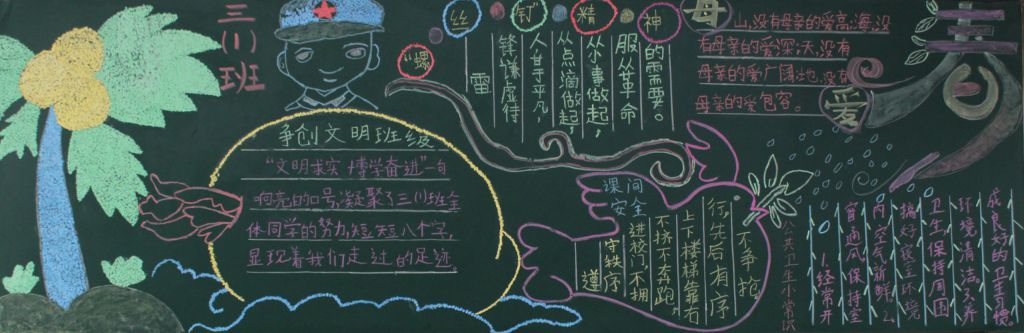 三(1)班
"螺丝钉"精神
雷
锋谦虚待
人甘于平凡,
从点滴做起,
从小事做起,
服从革命
的需要。
母爱
山,没有母亲的爱高;海,没
有母亲的爱深;天,没有
母亲的爱广阔;地,没有
母亲的爱包容。
春
争创文明班级
"文明求实 博学奋进"一句
响亮的口号,凝聚了三(1)班全
体同学的努力,短短八个字,
显现着我们走过的足迹。
课间
安全
遵
守秩序
进校门,不拥
不挤不奔跑,
上下楼梯靠右
行,先后有序
不争抢
公共卫生小常识
1.经常开
窗通风保持室
内空气新鲜。2.
搞好寝室环境
卫生保持周围
环境清洁。3.养
成良好的卫生习惯。